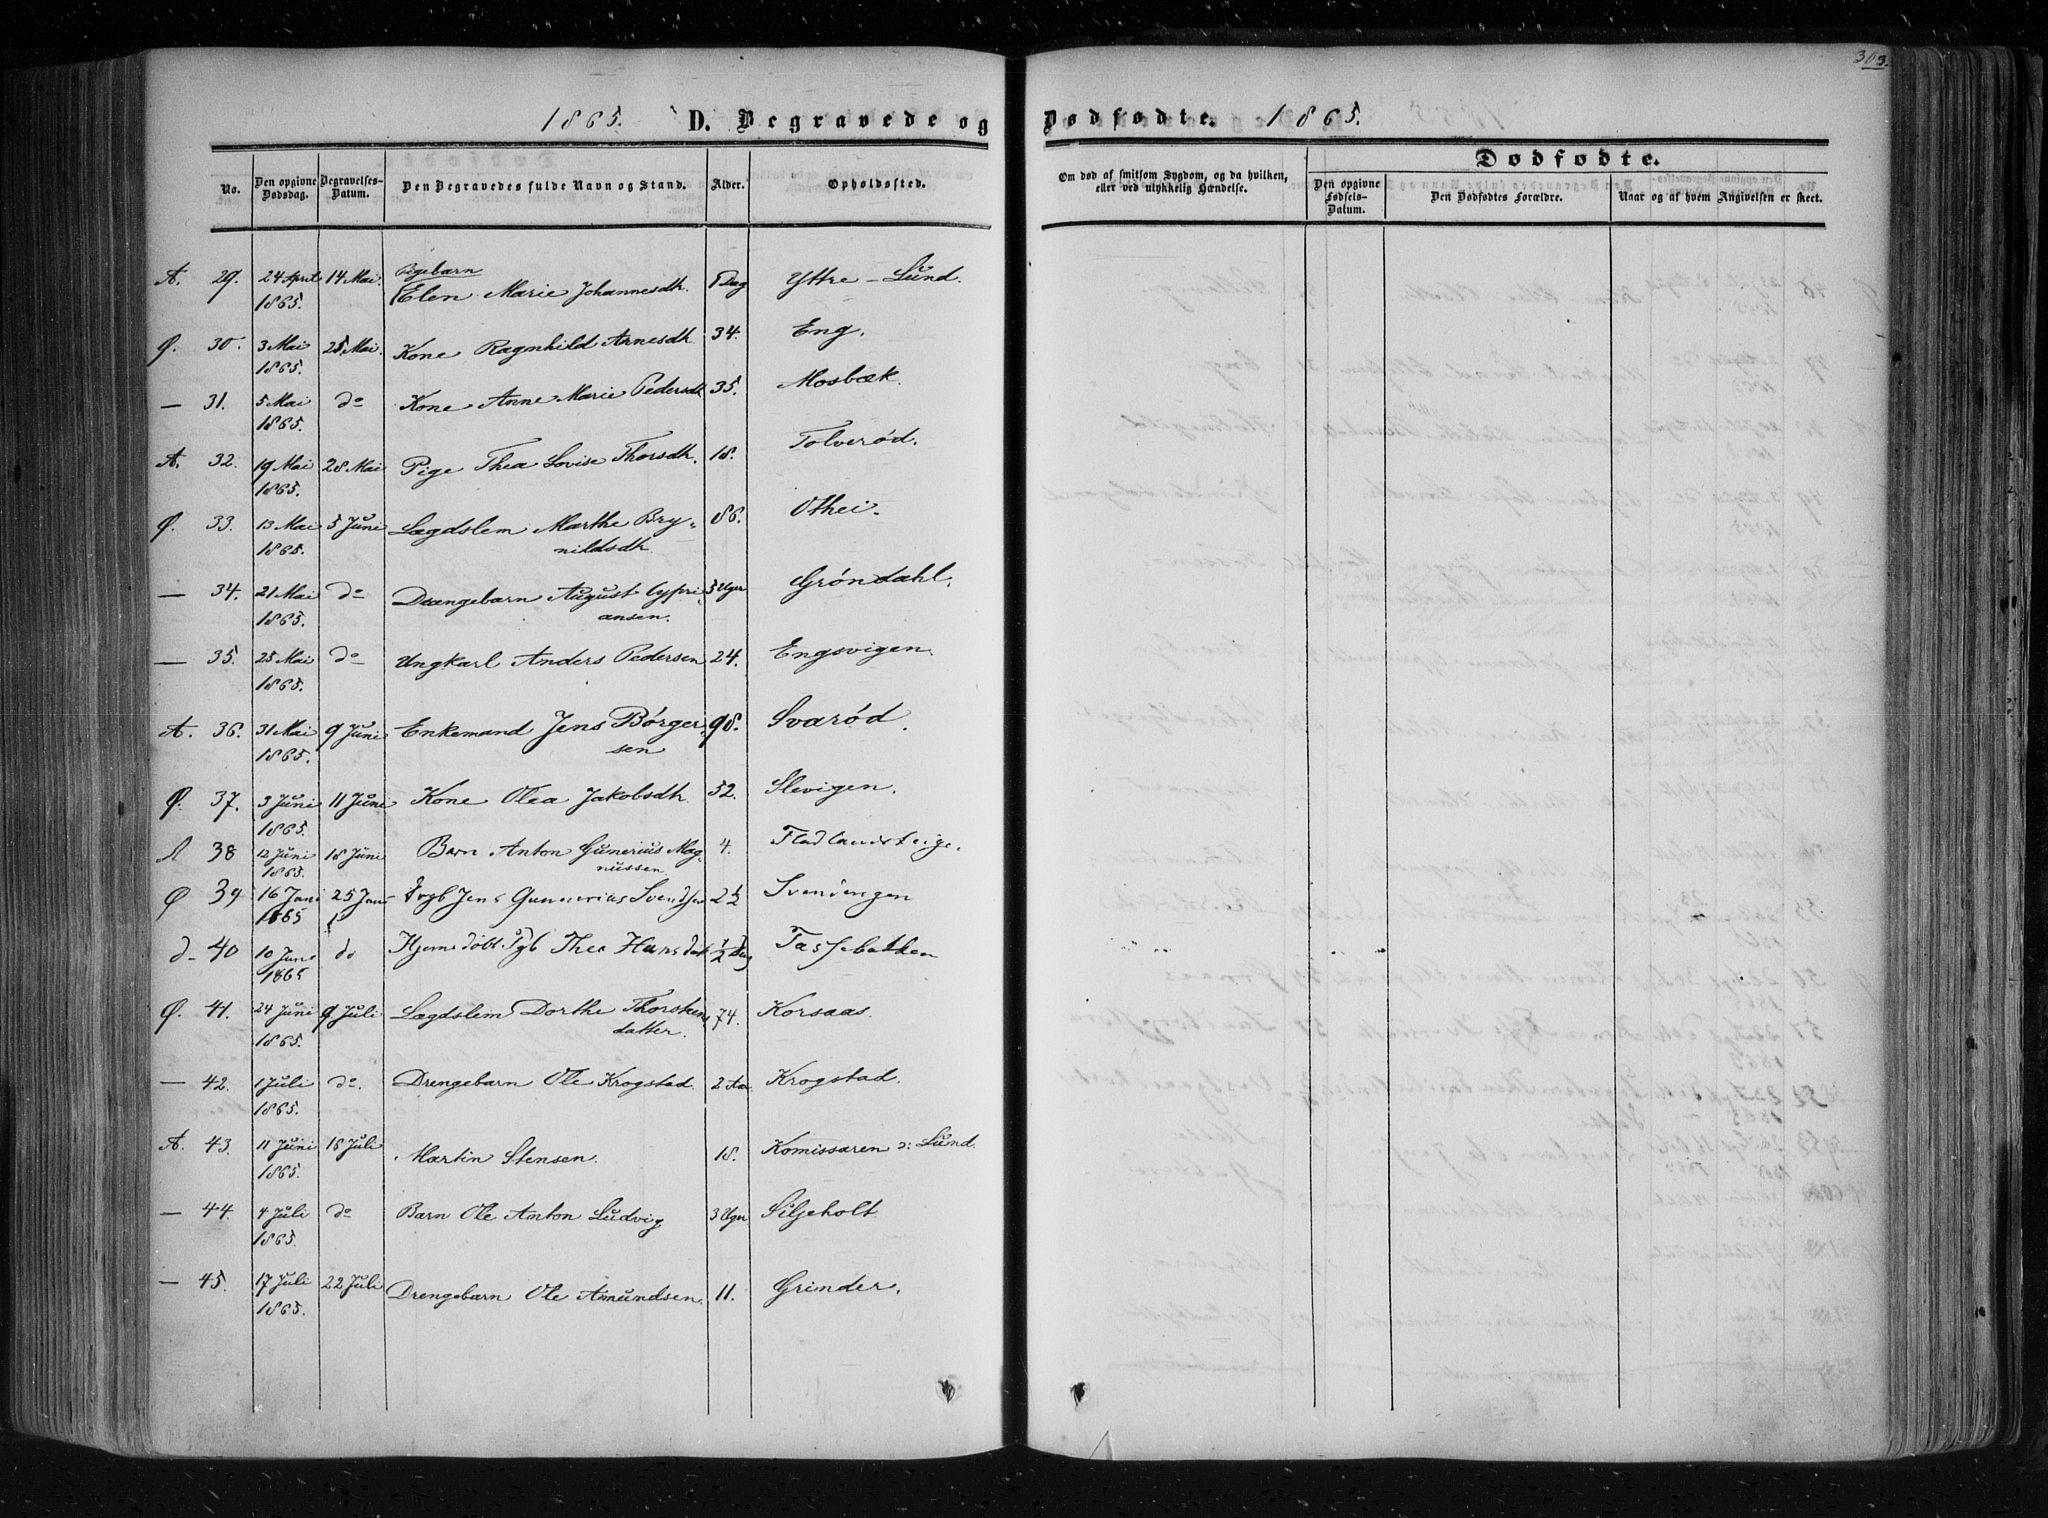 303.
1865. D. Begravede og Dødfødte. 1865.
No. Den opgivne Dødsdag. Begravelses-Datum. Den Begravedes fulde Navn og Stand. Alder. Opholdssted. Om død af smitsom Sygdom, og da hvilken, eller ved ulykkelig Hændelse. Dødfødte. Den opgivne Fødsels-Datum. Den Dødfødtes Forældre. Naar og af hvem Angivelsen er skeet.
A. 29. 24 April 1865. 14 Mai. Pigebarn Elen Marie Johannesdtr. 1 Dag Yttre-Lund.
Ø. 30. 3 Mai 1865. 25 Mai. Kone Ragnhild Arnesdtr. 34. Eng.
— 31. 5 Mai 1865. do Kone Anne Marie Pedersdtr 35. Mosbæk.
A. 32. 19 Mai 1865. 28 Mai Pige Thea Lovise Thorsdtr. 18. Tolverød.
Ø. 33. 13 Mai 1865. 5 Juni Lægdslem Marthe Brynildsdtr. 86. Othei.
— 34. 21 Mai 1865. do Drengebarn August Cypriansen. 5 Uger Grøndahl.
— 35. 25 Mai 1865. do Ungkarl Anders Pedersen 24. Engsvigen.
A. 36. 31 Mai 1865. 9 Juni Enkemand Jens Børgersen 98. Svarød.
Ø. 37. 3 Juni 1865. 11 Juni Kone Olea Jakobsdtr. 52. Slevigen.
A 38 12 Juni 1865. 18 Juni Barn Anton Gunerius Magnussen. 4. Fladlandsteige.
Ø 39 16 Juni 1865 25 Juni Jens Gunnerius Svendsen 2½ Svenengen
d- 40 10 Juni 1865 do Hjemdøbt Pgb Thea Hansdatt ½ Dag Tassebakken
Ø. 41. 24 Juni 1865. 9 Juli Lægdslem Dorthe Thorstensdatter. 74. Korsaas.
— 42. 1 Juli 1865. do. Drengebarn Ole Krogstad 2 Aar Krogstad.
A. 43. 11 Juni 1865. 18 Juli Martin Stensen. 18. Komissæren o: Lund
— 44. 4 Juli 1865. do Barn Ole Anton Ludvig 3 Uger Siljeholt
— 45. 17 Juli 1865. 22 Juli Drengebarn Ole Amundsen. 11. Grinder.